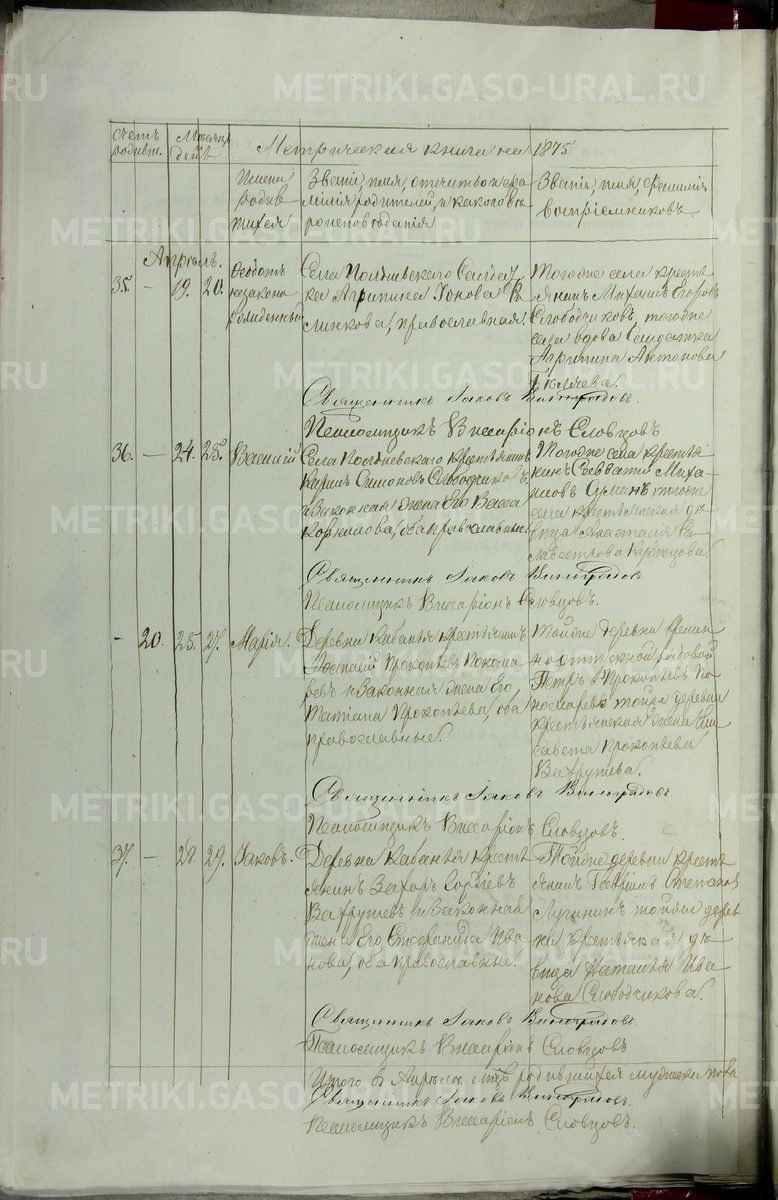 METRIKI.GASO-URAL.RU
Счетъ родивш. Мѣсяцъ день
Метрическая книга на 1875
Имена родившихся
Званіе, имя, отечество и фамилія родителей, и какого вѣроисповѣданія
Званіе, имя, фамилія воспріемниковъ.
Апрѣль.
35. — 19. 20.
Ѳеодотъ
незаконно
рожденный
Села
ка Агрипина Іонова
православная.
Тогоже села кресть
янинъ Михаилъ Егоровъ
Слободчиковъ, тогоже
села вдова Солдатка
Агрипина Антонова
Бѣляева.
Священникъ Іаковъ Виноградовъ.
Псаломщикъ Виссаріонъ Словцовъ
36. — 24. 25.
Василій
Села крестьянинъ
Симоновъ Слободчиковъ
и законная жена Его Васса
Корнилова, оба православные.
Тогоже села крестья
нинъ Савватій Миха
иловъ тогоже
села крестьянская дѣ
вица Анастасія Си
львестрова Кузнецова.
Священникъ Іаковъ Виноградовъ
Псаломщикъ Виссаріонъ Словцовъ.
- 20. 25. 27.
Марія.
Деревни Кабанья крестьянинъ
Прокопьевъ Понома
ревъ и законная жена Его
Татіана Прокопьева, оба
православные.
Тойже деревни времен
но отпускной рядовой
Петръ Прокопьевъ По
номаревъ тойже деревни
крестьянская жена Ели
савета Прокопьева
Вахрушева.
Священникъ Іаковъ Виноградовъ.
Псаломщикъ Виссаріонъ Словцовъ.
37. — 28. 29.
Іаковъ.
Деревни Кабанья кресть
янинъ Захаръ Сергіевъ
Вахрушевъ и законная
жена Его Стефанида Ива
нова, оба православные.
Тойже деревни кресть
янинъ Гавріилъ Степановъ
Лучининъ тойже дерев
ни крестьянская дѣ
вица Наталья Ива
нова Слободчикова.
Священникъ Іаковъ Виноградовъ
Псаломщикъ Виссаріонъ Словцовъ
Итого въ Апрѣлѣ м-цѣ родившихся мужеска пола
Священникъ Іаковъ Виноградовъ.
Псаломщикъ Виссаріонъ Словцовъ.